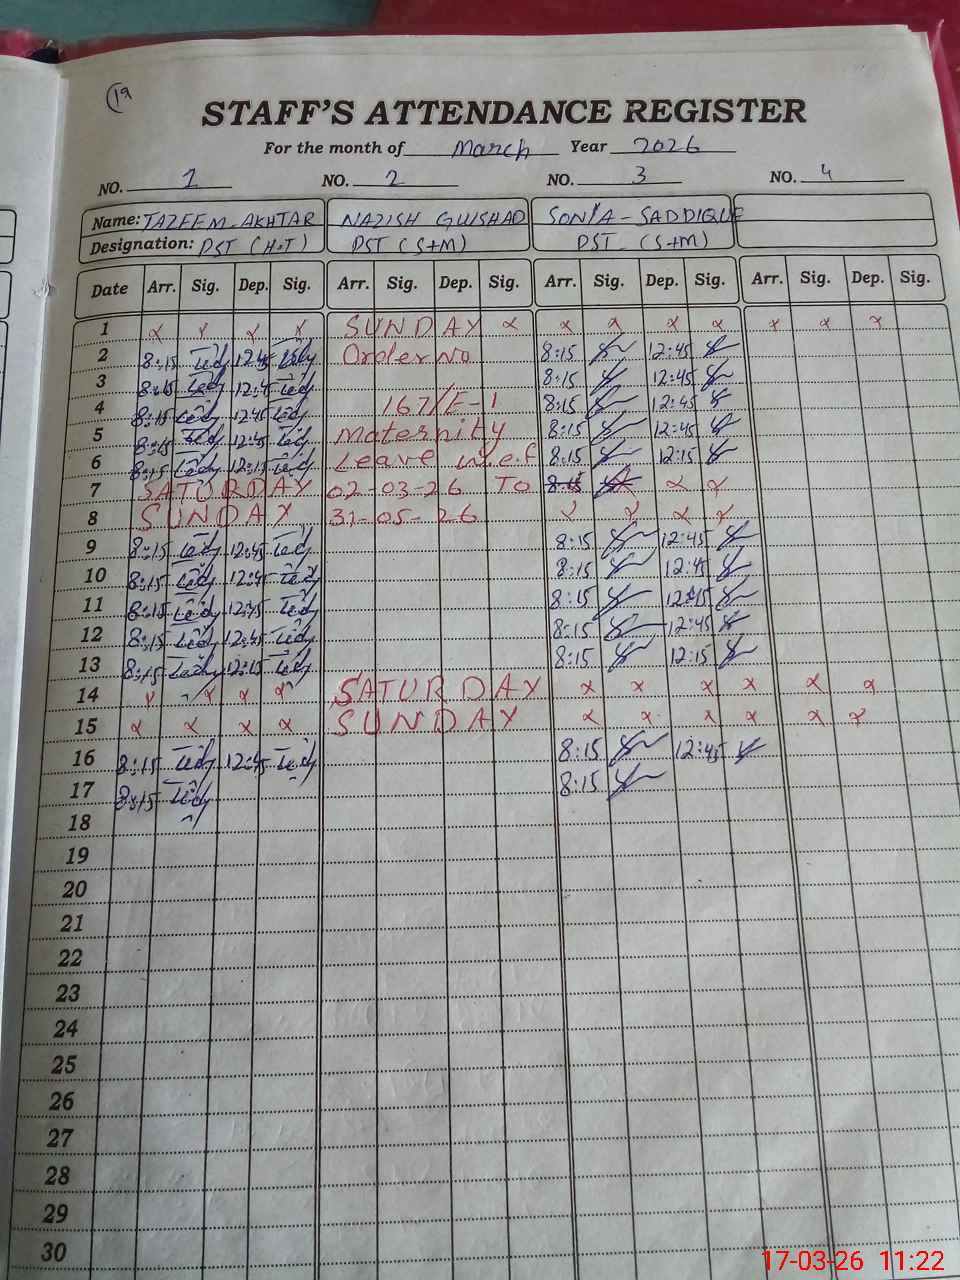 19
STAFF'S ATTENDANCE REGISTER
For the month of March Year 2026
NO. 1 NO. 2 NO. 3 NO. 4
Name: TAZEEM-AKHTAR NAZISH GULSHAD SONIA-SADDIQUE
Designation: PST (H.T) PST (S+M) PST (S+M)
Date Arr. Sig. Dep. Sig. Arr. Sig. Dep. Sig. Arr. Sig. Dep. Sig. Arr. Sig. Dep. Sig.
1 x x x x SUNDAY x x x x x x x x
2 8:15 12:45 Order No 8:15 12:45
3 8:15 12:45 8:15 12:45
4 8:15 12:45 167/E-1 8:15 12:45
5 8:15 12:45 Maternity 8:15 12:45
6 8:15 12:15 Leave w.e.f 8:15 12:15
7 SATURDAY 02-03-26 TO 8:15 x x
8 SUNDAY 31-05-26 x x x x
9 8:15 12:45 8:15 12:45
10 8:15 12:45 8:15 12:45
11 8:15 12:45 8:15 12:45
12 8:15 12:45 8:15 12:45
13 8:15 12:15 8:15 12:15
14 x x x x SATURDAY x x x x x x
15 x x x x SUNDAY x x x x x x
16 8:15 12:45 8:15 12:45
17 8:15 8:15
18
19
20
21
22
23
24
25
26
27
28
29
30
17-03-26 11:22